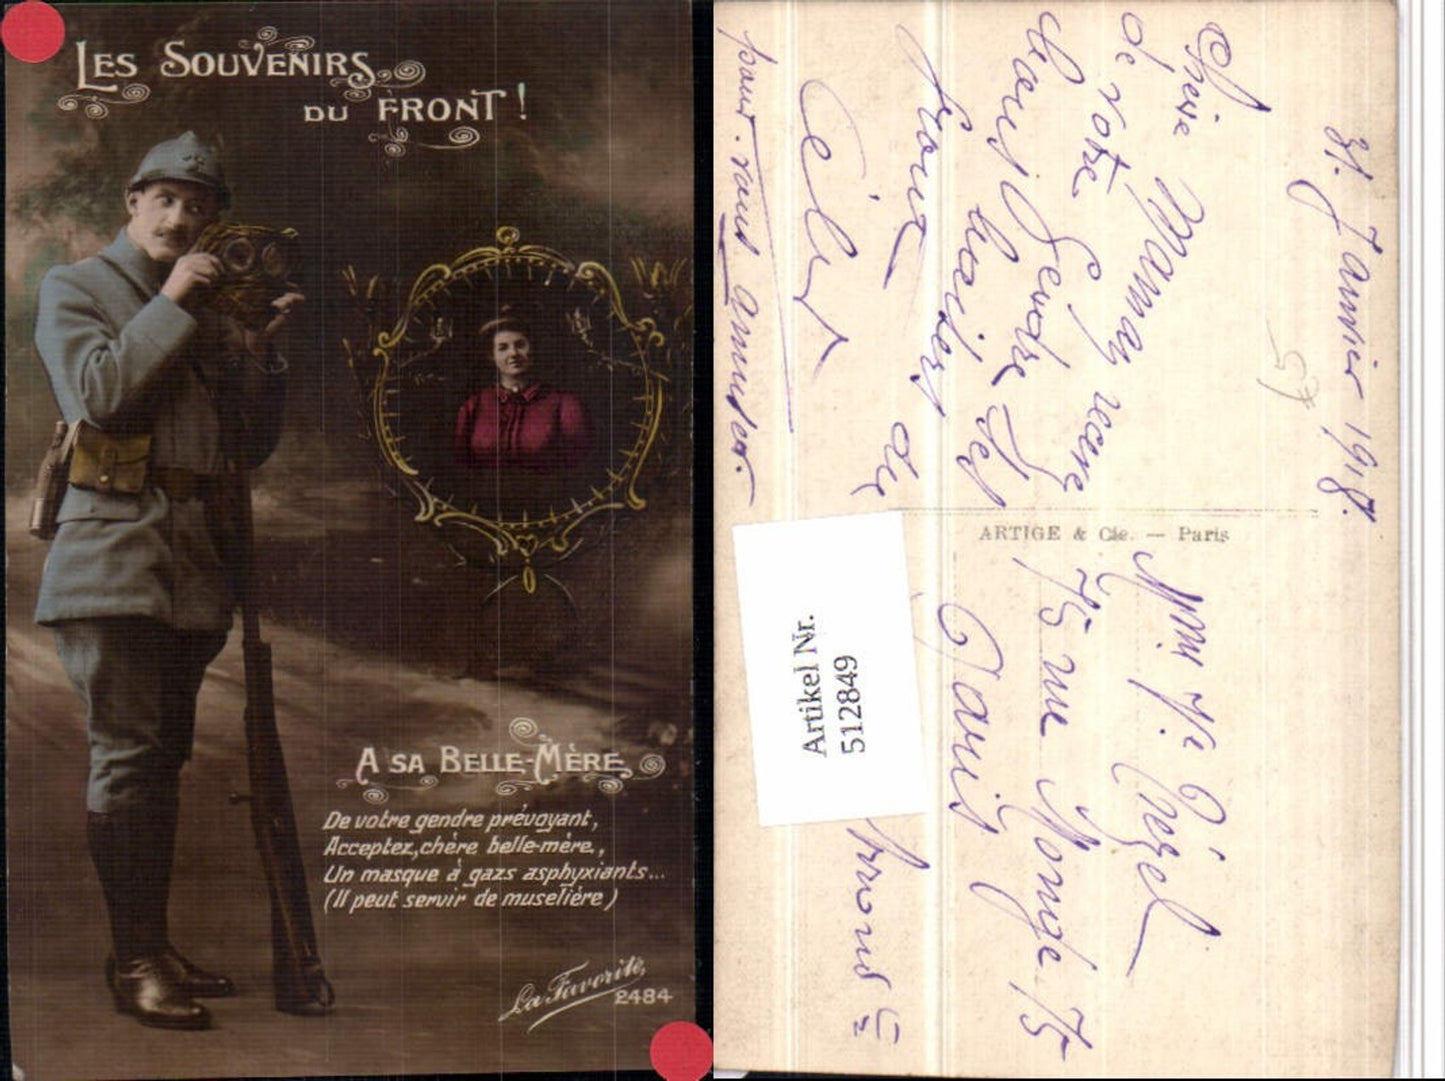 LES SOUVENIRS
DU FRONT !
A SA BELLE-MÈRE
De votre gendre prévoyant,
Acceptez, chère belle-mère,
Un masque à gazs asphyxiants...
(Il peut servir de muselière)
La Favorite,
2484
31. Janvier 1918.
Chère Maman recevez
de votre
Gendre les
bons baisers
du
front
pour vous amuser.
57
ARTIGE & Cie. — Paris
75 rue Monge 75
Paris
Artikel Nr.
512849